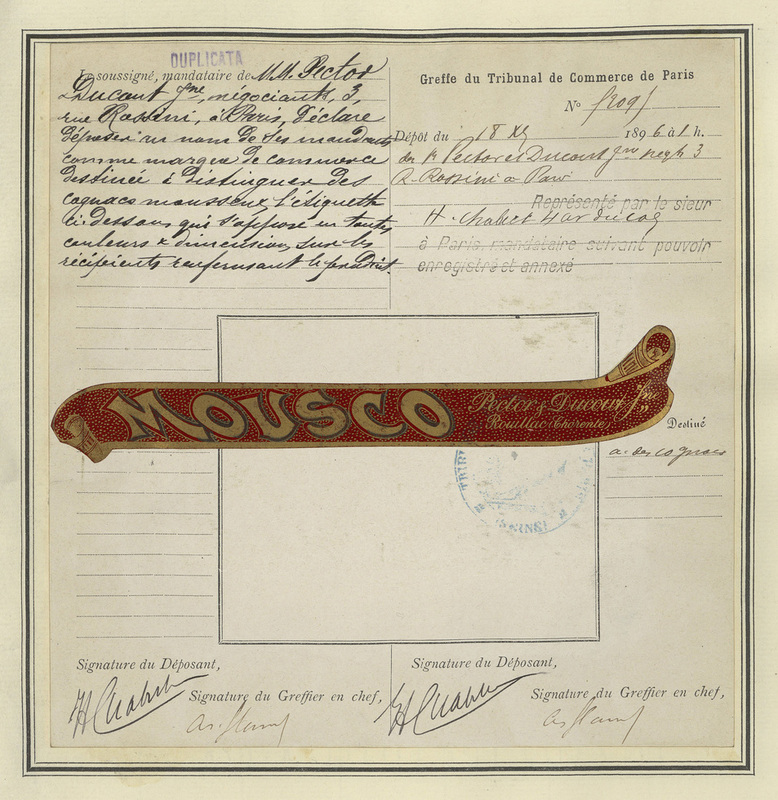 DUPLICATA
Le soussigné, mandataire de M.M. Pector
& Ducout Jne, négociants, 3,
rue Rossini, à Paris, déclare
déposer au nom de ses mandants
comme marque de commerce
destinée à distinguer des
cognacs mousseux l'étiquette
ci-dessous qui s'appose en toutes
couleurs & dimensions sur les
récipients renfermant le produit.
Greffe du Tribunal de Commerce de Paris
No
Dépôt du 18 1896 à 1 h.
des Pector et Ducout Jne 3
R. Rossini à Paris
Représenté par le sieur
H. Chabert
à Paris, mandataire suivant pouvoir
enregistré et annexé
MOUSCO
Pector & Ducout Jne
Rouillac (Charente)
Destiné
à des cognacs
Signature du Déposant,
H Chabert
Signature du Greffier en chef,
Signature du Déposant,
H Chabert
Signature du Greffier en chef,